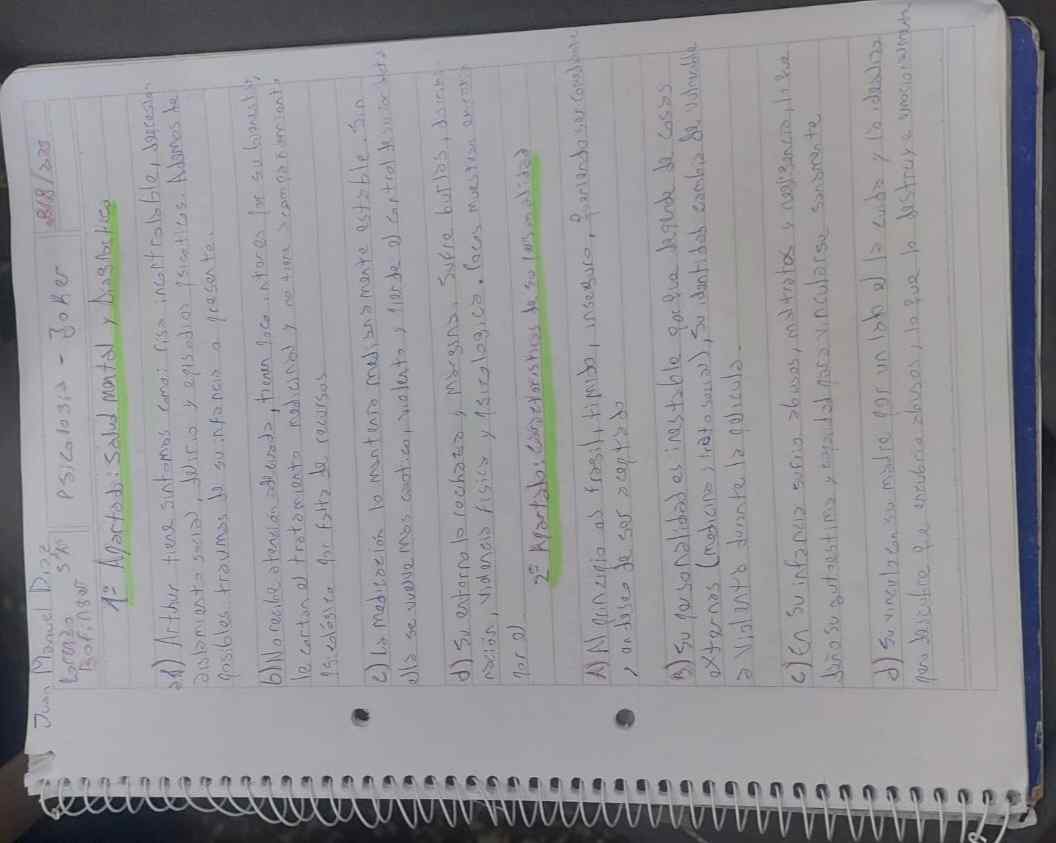 Juan Manuel Diaz
Lorenzo
Boringer 5to
Psicologia - Joker
1º Apartado: Salud mental y Diagnostico
a) Arthur tiene sintomas como: risa incontrolable, depresion,
aislamiento social, delirio y episodios psicoticos. Ademas de
posibles traumas de su infancia a presente.
b) No recibe atención adecuada, tienen poco interes por su bienestar,
le cortan el tratamiento medicinal y no tiene acompañamiento
psicológico por falta de recursos.
c) La medicación lo mantenia medianamente estable. Sin
ella se vuelve mas caotico, violento y pierde el control de su
d) Su entorno lo rechaza y margina. Sufre burlas, discrimi-
nación, violencia física y psicologica. Pocos muestran
por el
2º Apartado: Caracteristicas de su personalidad
A) Al principio es fragil, timido, inseguro, queriendo ser comediante
y con deseo de ser aceptado
B) Su personalidad es inestable porque depende de cosas
externas (medicina y trato social), su identidad cambia de vulnerable
a violento durante la pelicula.
c) En su infancia sufrio abusos, maltratos y negligencia, lo que
daño su autoestima y capacidad para vincularse sanamente
d) Su vinculo con su madre por un lado el la cuida y la idealiza
pero descubre que encubria abusos, lo que lo destruye emocionalmente